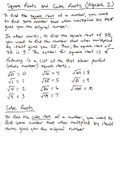 Square Roots and Cube Roots (Algebra I)
Square Roots
To find the square root of a number, you want
to find some number that when multiplied by
itself gives you the original number.
In other words, to find the square root of 25,
you want to find the number that when multiplied
by itself gives you 25. Then, the square root of
25 is 5. The symbol for square root is √
Following is a list of the first eleven perfect
(whole number) square roots.
√0 = 0 √16 = 4 √64 = 8
√1 = 1 √25 = 5 √81 = 9
√4 = 2 √36 = 6 √100 = 10
√9 = 3 √49 = 7
Cube Roots
To find the cube root of a number, you want to
find some number that when multiplied by itself
twice gives you the original number.